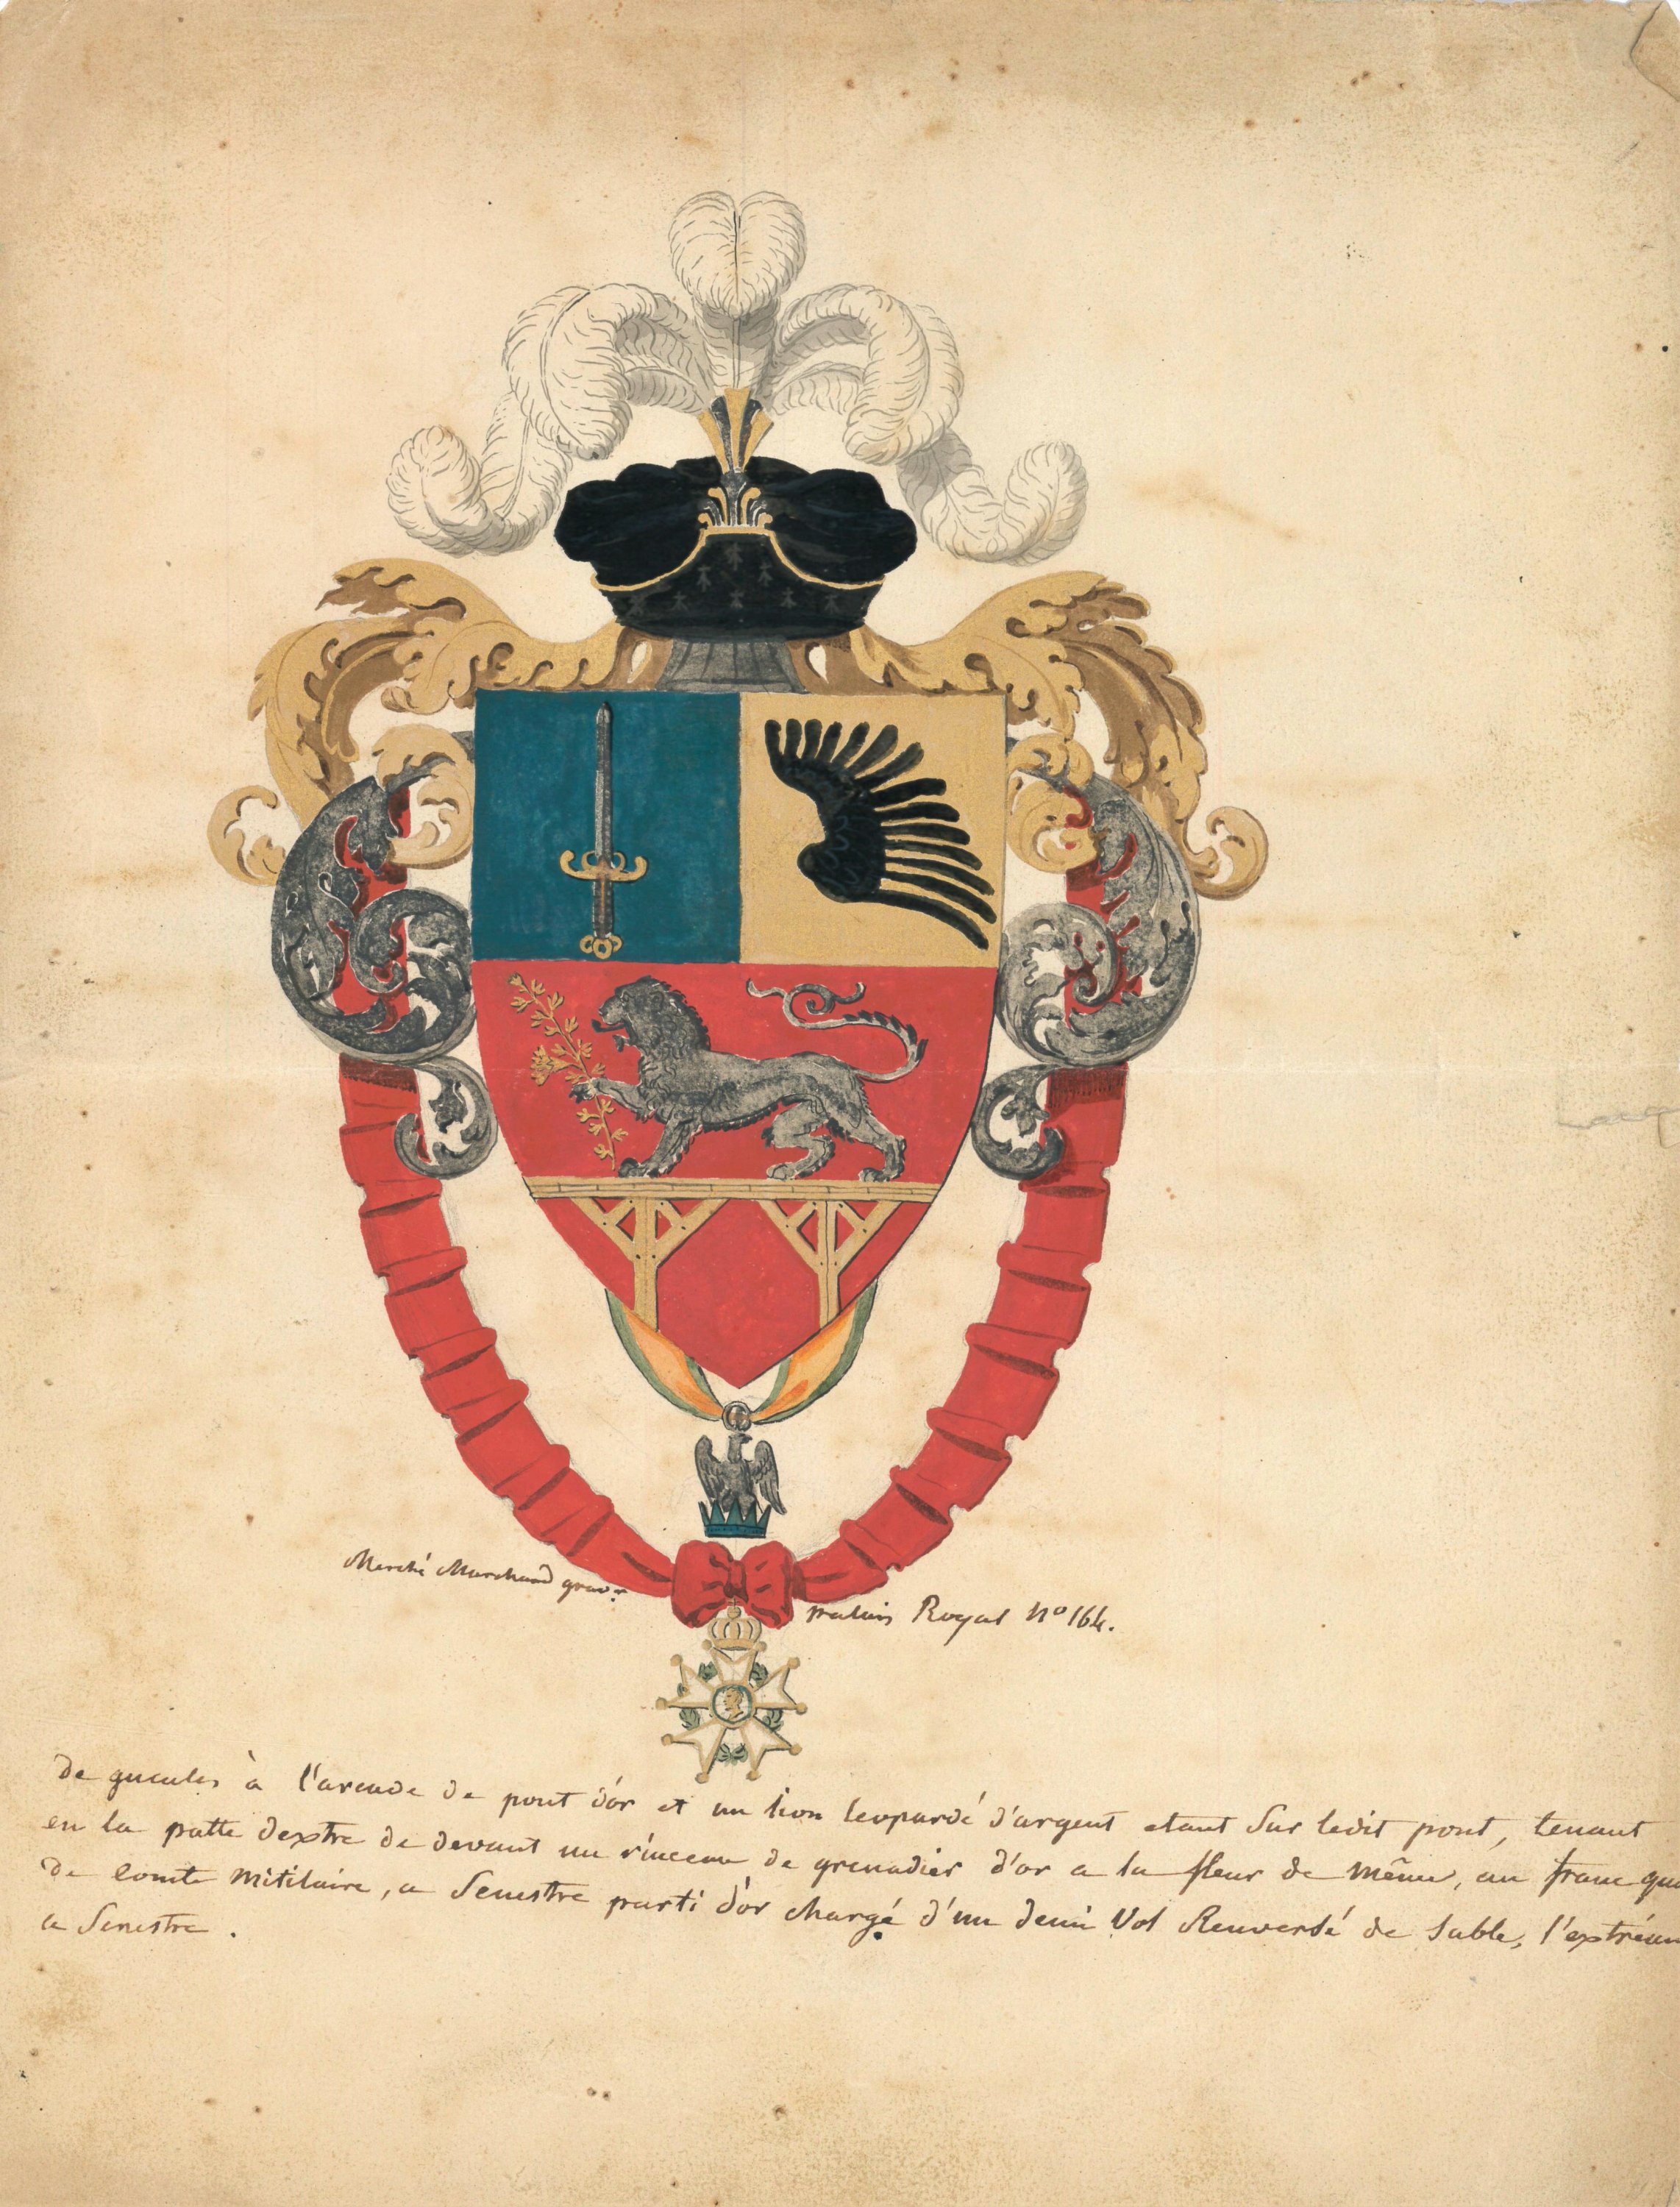 Merché Marchand grav.r
palais Royal N.º 164.
de gueules à l'arcade de pont d'or et un lion leopardé d'argent etant sur ledit pont, tenant
en la patte dextre de devant un rinceau de grenadier d'or a la fleur de même, au franc qua
de comte mitilaire, a senestre parti d'or chargé d'un demi vol Renversé de sable, l'extrém
a senestre.